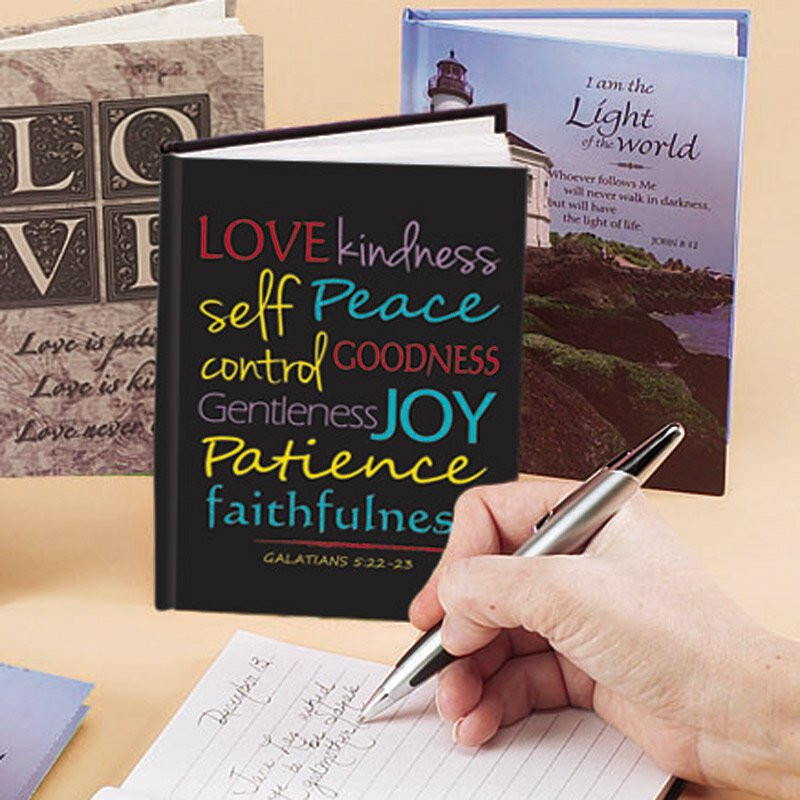 LO
VE
Love is pati
Love is ki
Love never
LOVE kindness
self Peace
control GOODNESS
Gentleness JOY
Patience
faithfulness
GALATIANS 5:22-23
I am the
Light
of the world
Whoever follows Me
will never walk in darkness,
but will have
the light of life.
JOHN 8:12
December 13,
Jane has asked
me to be the
godmother